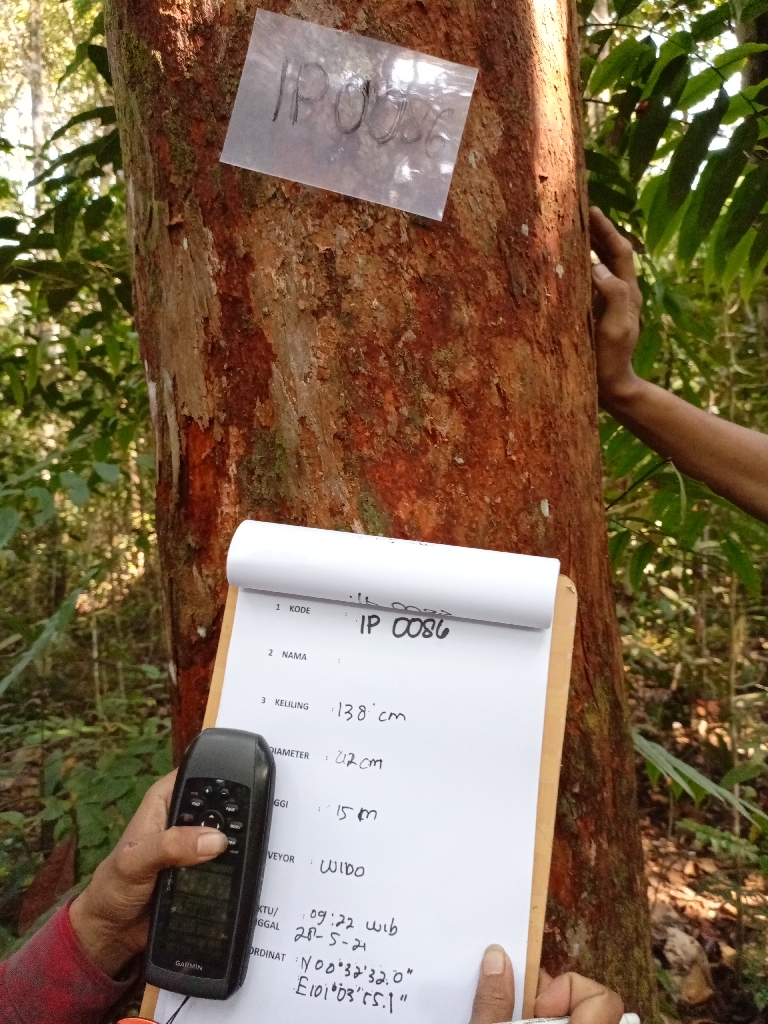 IP 0086
1 KODE : IP 0086
2 NAMA :
3 KELILING : 138 cm
DIAMETER : 42 cm
GGI : 15 m
VEYOR : WIDO
KTU/ : 09:22 wib
GGAL 28-5-21
ORDINAT : N 00°32'32.0"
E101°03'55.1"
GARMIN